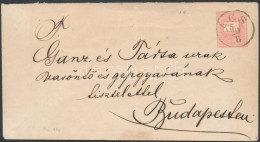 A
Ganz és Társa urak
vasöntő és gépgyárának
tisztelettel
Budapesten